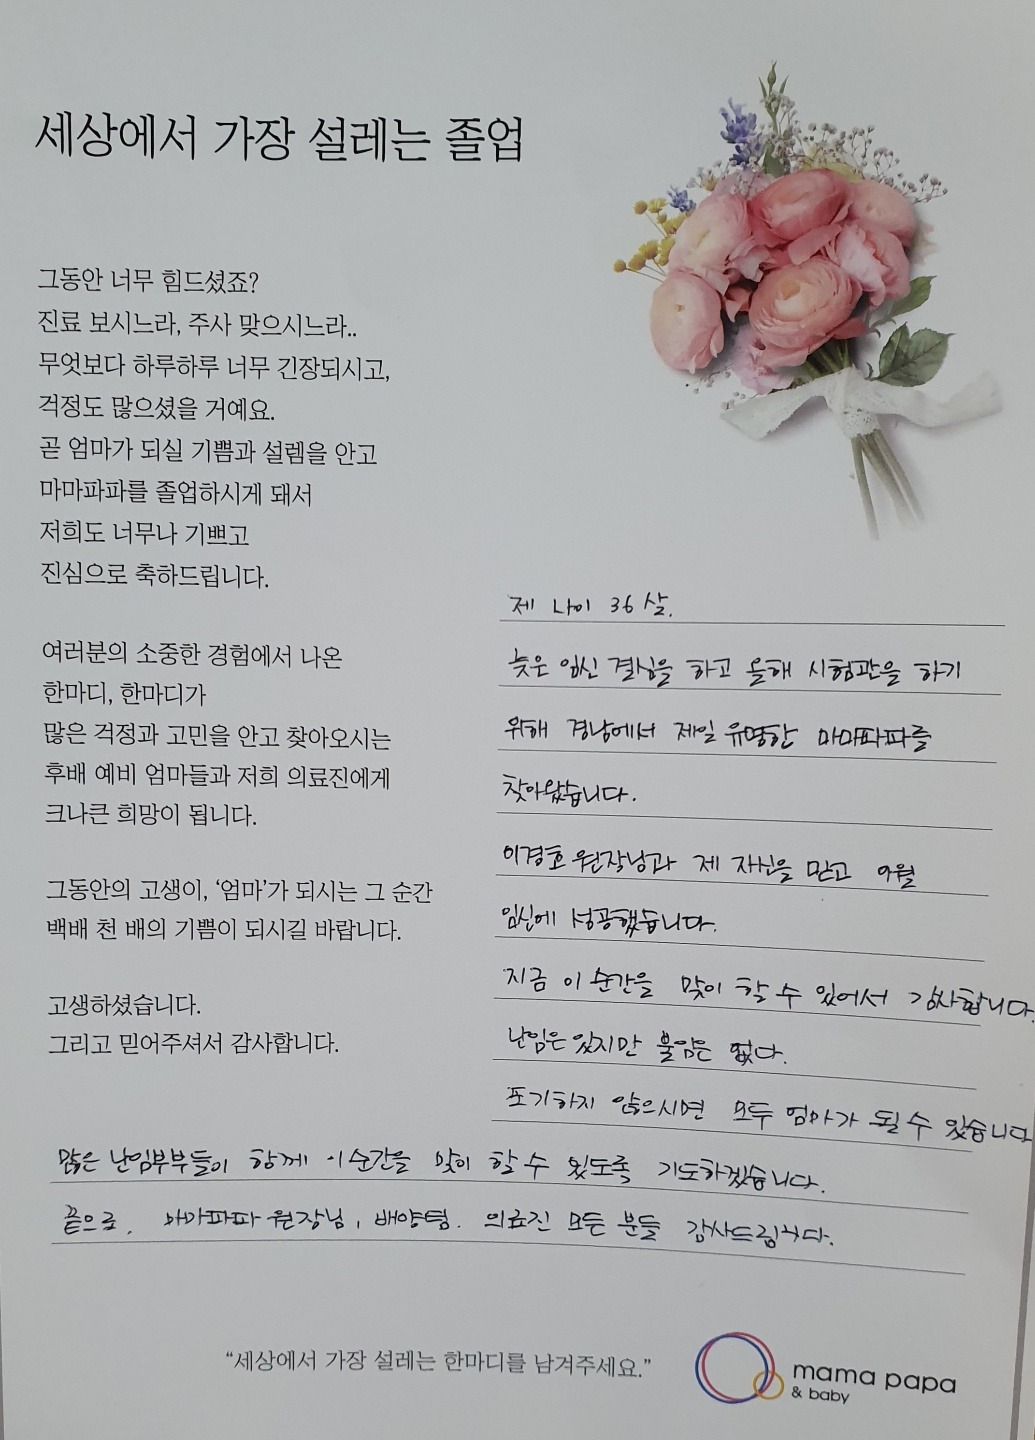 세상에서 가장 설레는 졸업
그동안 너무 힘드셨죠?
진료 보시느라, 주사 맞으시느라..
무엇보다 하루하루 너무 긴장되시고,
걱정도 많으셨을 거예요.
곧 엄마가 되실 기쁨과 설렘을 안고
마마파파를 졸업하시게 돼서
저희도 너무나 기쁘고
진심으로 축하드립니다.
여러분의 소중한 경험에서 나온
한마디, 한마디가
많은 걱정과 고민을 안고 찾아오시는
후배 예비 엄마들과 저희 의료진에게
크나큰 희망이 됩니다.
그동안의 고생이, ‘엄마’가 되시는 그 순간
백배 천 배의 기쁨이 되시길 바랍니다.
고생하셨습니다.
그리고 믿어주셔서 감사합니다.
제 나이 36살.
늦은 임신 결심을 하고 올해 시험관을 하기
위해 경남에서 제일 유명한 마마파파를
찾아왔습니다.
이경호 원장님과 제 자신을 믿고 9월
임신에 성공했습니다.
지금 이 순간을 맞이 할 수 있어서 감사합니다.
난임은 있지만 불임은 없다.
포기하지 않으시면 모두 엄마가 될 수 있습니다
많은 난임부부들이 함께 이순간을 맞이 할 수 있도록 기도하겠습니다.
끝으로, 마마파파 원장님, 배양팀. 의료진 모든 분들 감사드립니다.
“세상에서 가장 설레는 한마디를 남겨주세요.”
mama papa
& baby